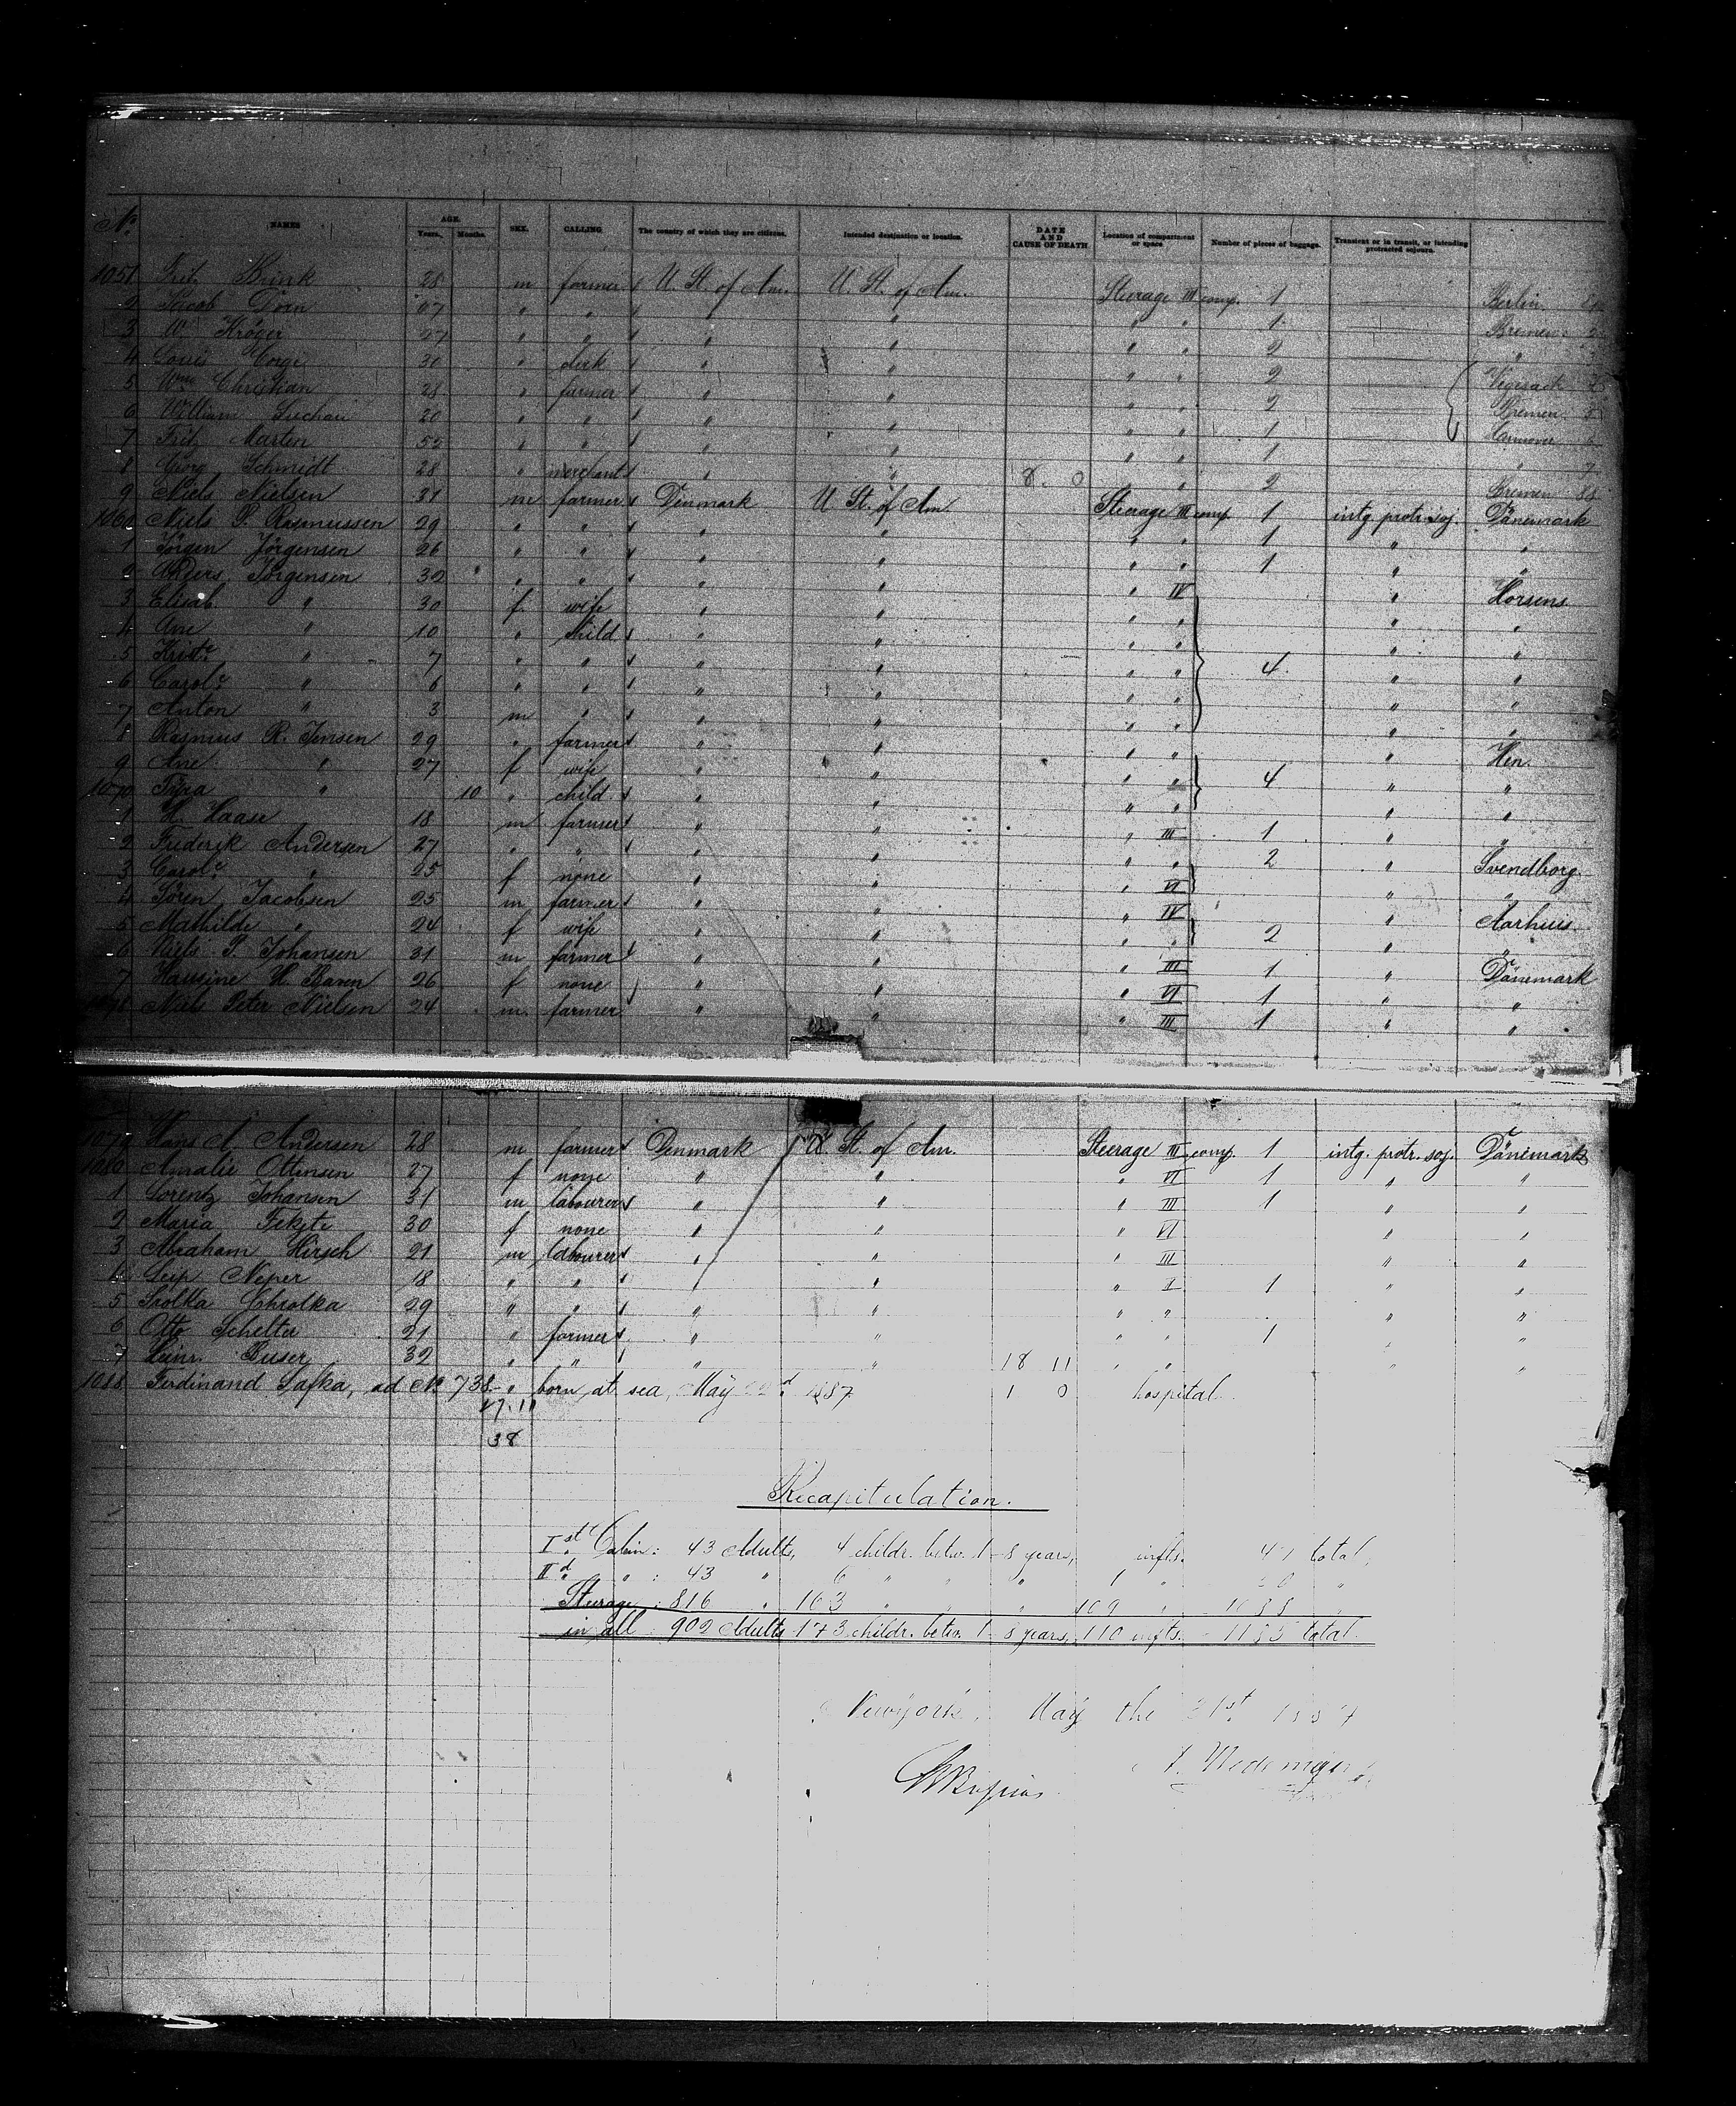 No. NAMES AGE. Years. Months. SEX. CALLING The country of which they are citizens. Intended destination or location. DATE AND CAUSE OF DEATH. Location of compartment or space. Number of pieces of baggage. Transient or in transit, or intending protracted sojourn.
1051 Brink 28 m farmer U. St. of Am. U. St. of Am. Steerage III comp. 1 Berlin
2 Jacob Dorn " " " " " " 1 Bremen
3 W. Kröger " " " " " " 2 "
4 Louis 30 " clerk " " " " 2 Vegesack
5 Wm Christian 28 " farmer " " " " 2 Bremen
6 William 20 " " " " " " 1 Hannover
7 Fritz Martin 52 " " " " " " 1 "
8 Georg Schmidt 28 " merchant " " 8. 0 " " 2 Bremen
9 Niels Nielsen 31 m farmer Denmark U St. of Am Steerage III comp. 1 intg. protr. soj. Dänemark
1060 Niels P. Rasmussen 29 " " " " " " 1 " "
1 Jörgen Jörgensen 26 " " " " " " 1 " "
2 Anders Jörgensen 30 " " " " " IV " Horsens
3 Elisab. " 30 f. wife " " " " " "
4 Ane " 10 " child " " " " " "
5 " 7 " " " " " " 4 " "
6 Carole " 6 " " " " " " " "
7 Anton " 3 m " " " " " " "
8 Rasmus R. Jensen 29 " farmer " " " " " Hen
9 Ane " 27 f wife " " " " 4 " "
1070 " 10 " child " " " " " "
1 H. Haase 18 m farmer " " " III 1 " "
2 Frederik Andersen 27 " " " " " " 2 " Svendborg
3 Carole " 25 f none " " " VI " "
4 Sören Jacobsen 25 m farmer " " " IV " Aarhuus
5 Mathilde " 24 f wife " " " " 2 " "
6 Niels P. Johansen 31 m farmer " " " III 1 " Dänemark
7 26 f none " " " VI 1 " "
1078 Niels Peter Nielsen 24 m. farmer " " " III 1 " "
1079 Hans A. Andersen 28 m farmer Denmark U. St. of Am. Steerage III comp. 1 intg. protr. soj. Dänemark
1080 Amalie Ottensen 27 f none " " " VI 1 " "
1 Lorentz Johansen 31 m labourer " " " III 1 " "
2 Maria Fekete 30 f none " " " VI " "
3 Abraham Hirsch 21 m labourer " " " III " "
4 Neper 18 " " " " " I 1 " "
5 29 " " " " " " " "
6 Otto Schelter 21 " farmer " " " " 1 " "
7 Heinr. Buser 32 " " " " 18 11 " " " "
1088 Ferdinand Safka, ad No 738 " born at sea, May 1887 1 0 hospital
17.11
38
Recapitulation.
Ist Cabin: 43 Adults, 4 childr. betw. 1-8 years, infts. 47 total,
IId " : 43 " 6 " " " 1 " 50 "
Steerage : 816 " 163 " " " 109 " 1088 "
in all : 902 Adults 173 childr. betw. 1-8 years, 110 infts. 1185 total
Newyork, May the 21st 1887